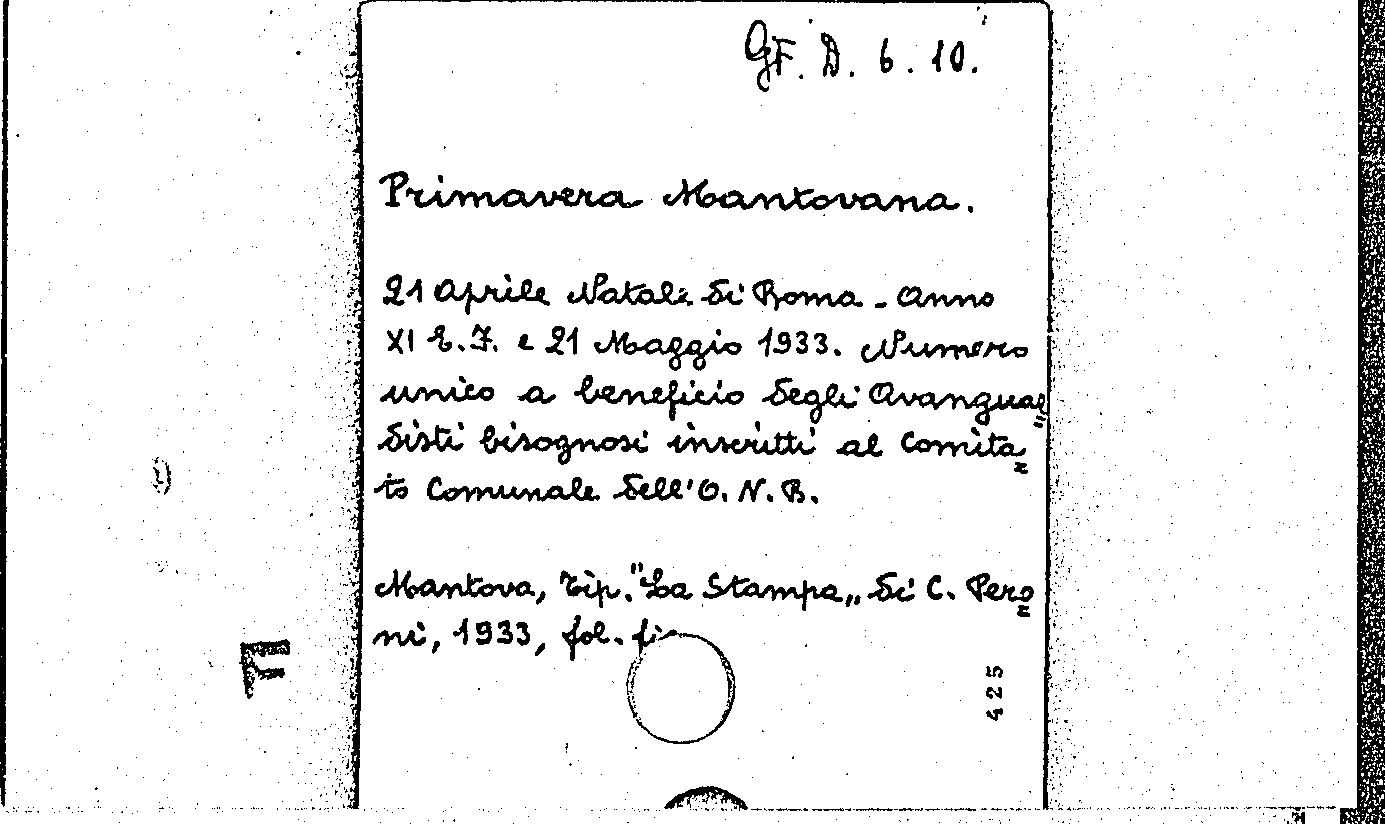 GF. D. 6. 10.
Primavera Mantovana.
21 Aprile Natale di Roma - Anno
XI E.F. e 21 Maggio 1933. Numero
unico a beneficio degli Avanguar„
disti bisognosi inscritti al Comita=
to Comunale dell'O.N.B.
Mantova, Tip. "La Stampa„ di C. Pero=
ni, 1933, fol.
425
F